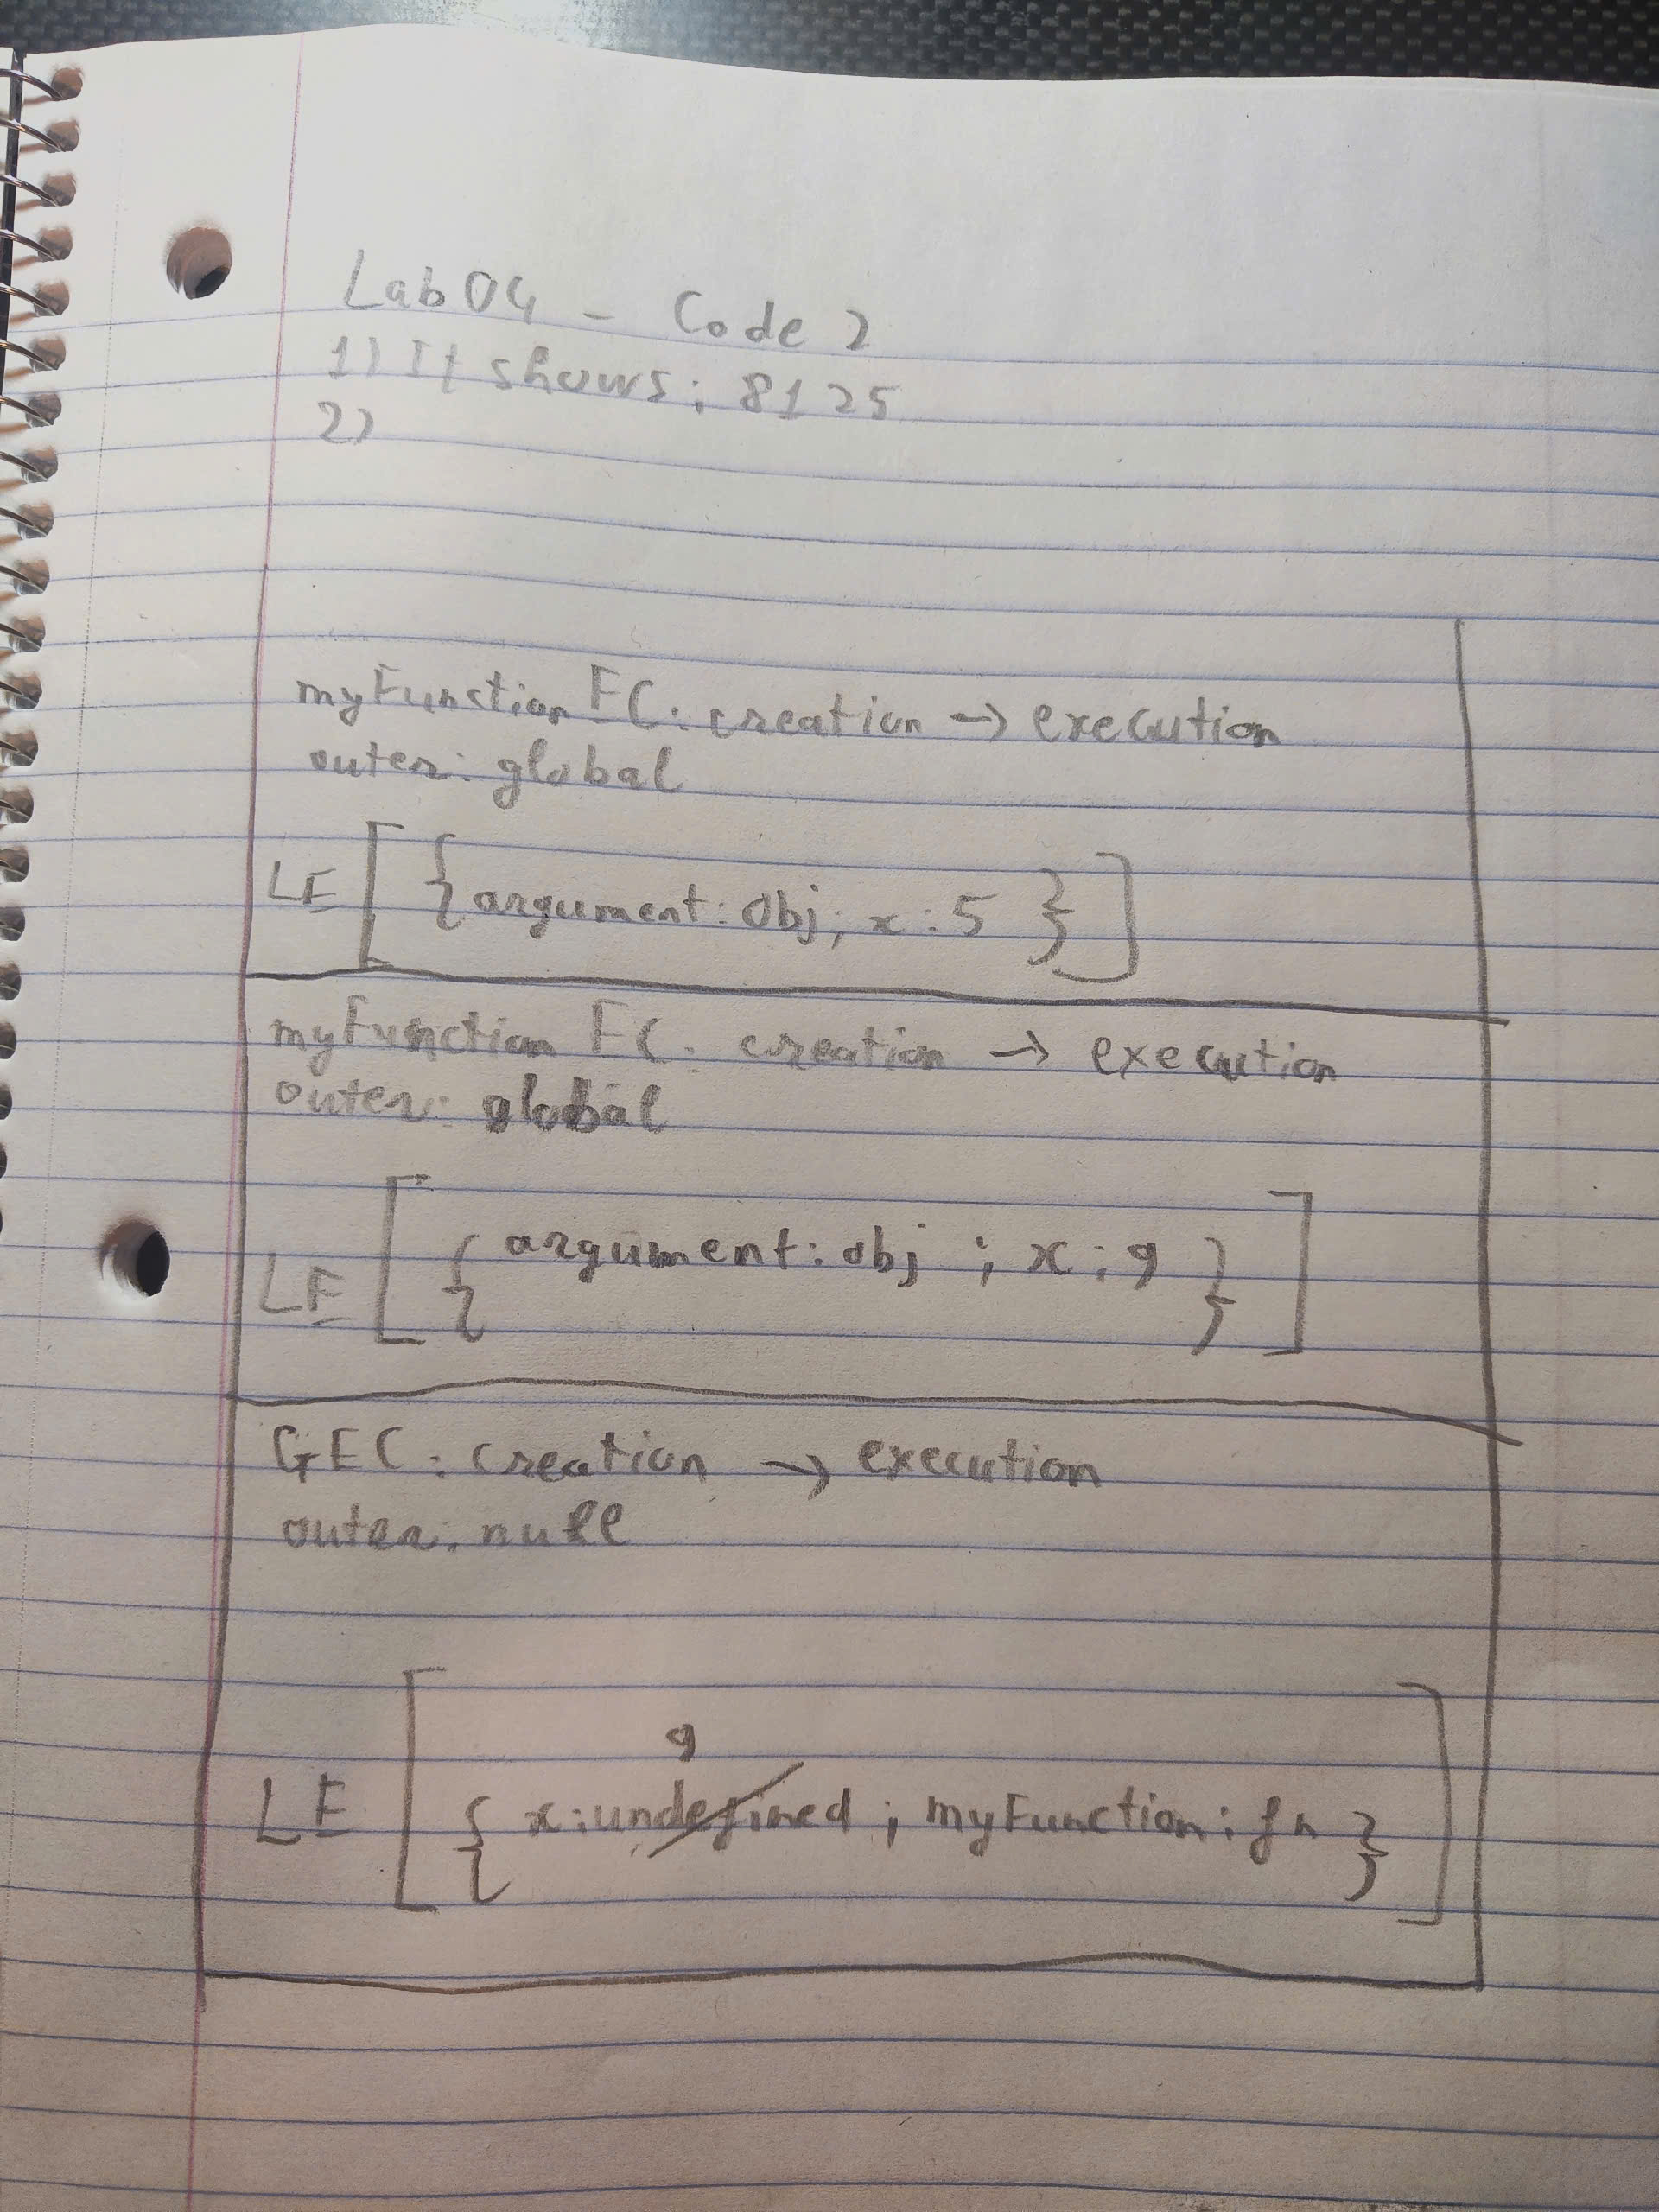 Lab 04 - Code 2
1) It shows: 8125
2)
myFunction EC: creation → execution
outer: global
LE [ { argument: Obj; x: 5 } ]
myFunction EC. creation → execution
outer: global
LE [ { argument: obj ; x: 9 } ]
GEC: creation → execution
outer: null
9
LE [ { x: undefined ; myFunction: fn } ]